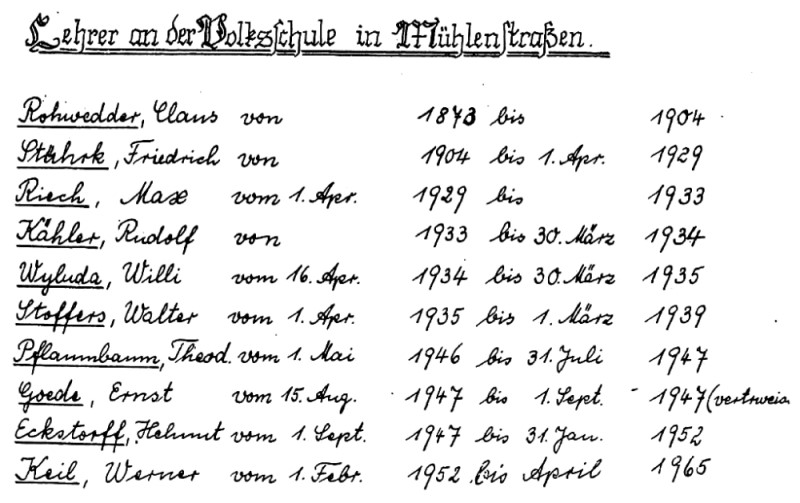 Lehrer an der Volksschule in Mühlenstraßen.
Rohwedder, Claus von 1873 bis 1904
Stührk, Friedrich von 1904 bis 1. Apr. 1929
Riech, Max vom 1. Apr. 1929 bis 1933
Kähler, Rudolf von 1933 bis 30. März 1934
Wyluda, Willi vom 16. Apr. 1934 bis 30. März 1935
Stoffers, Walter vom 1. Apr. 1935 bis 1. März 1939
Pflaumbaum, Theod. vom 1. Mai 1946 bis 31. Juli 1947
Goede, Ernst vom 15. Aug. 1947 bis 1. Sept. 1947 (vertrweis.
Eckstorff, Helmut vom 1. Sept. 1947 bis 31. Jan. 1952
Keil, Werner vom 1. Febr. 1952 bis April 1965